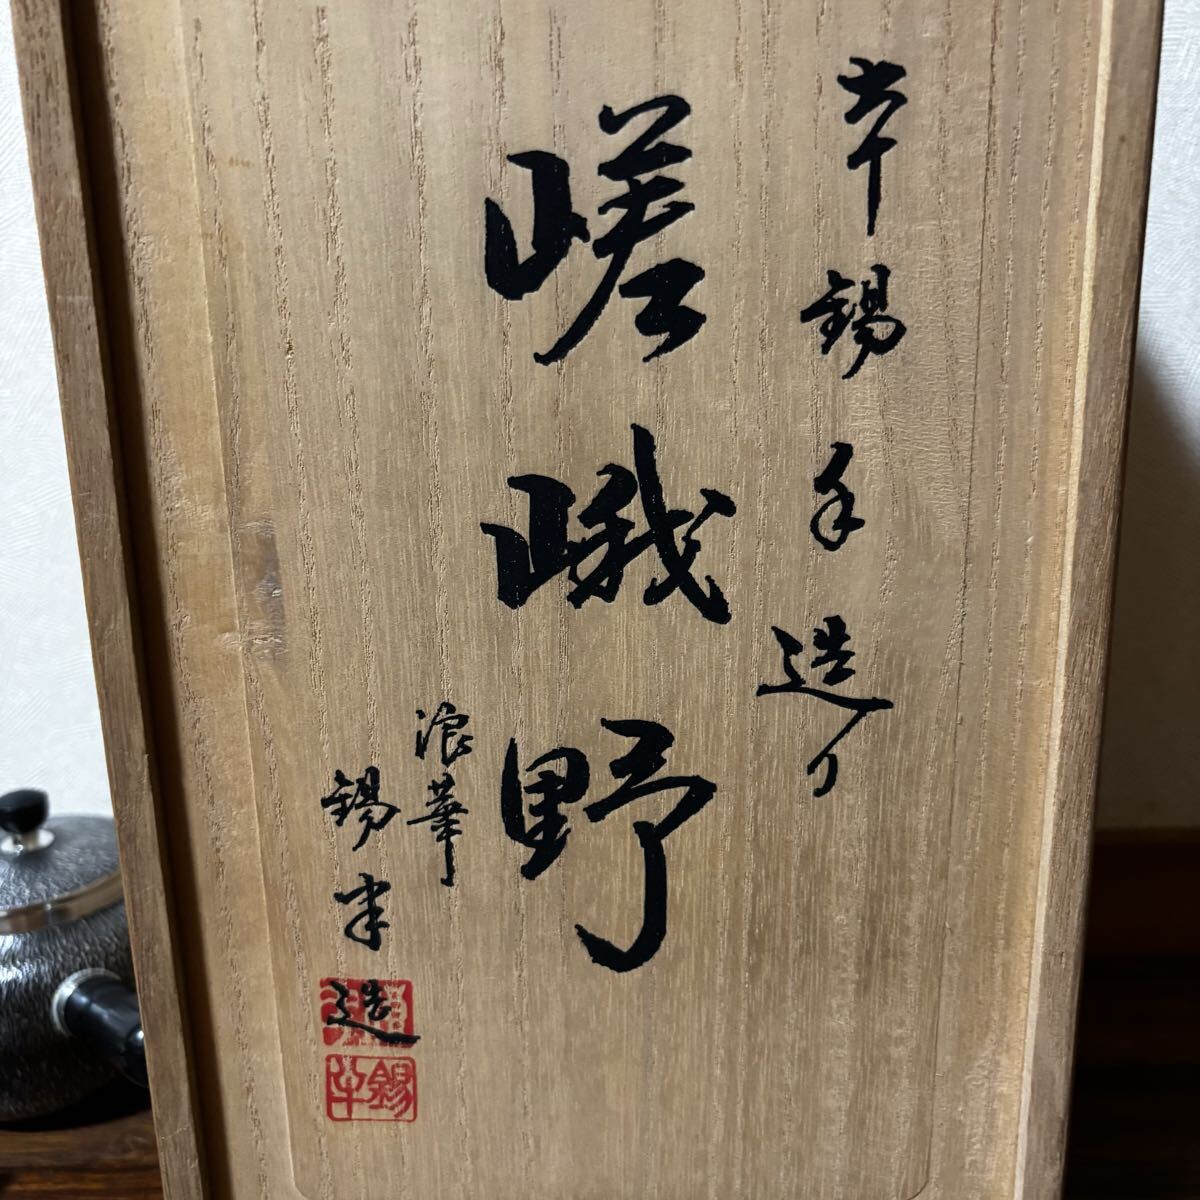 本錫手造り
嵯峨野
浪華
錫半造
錫半